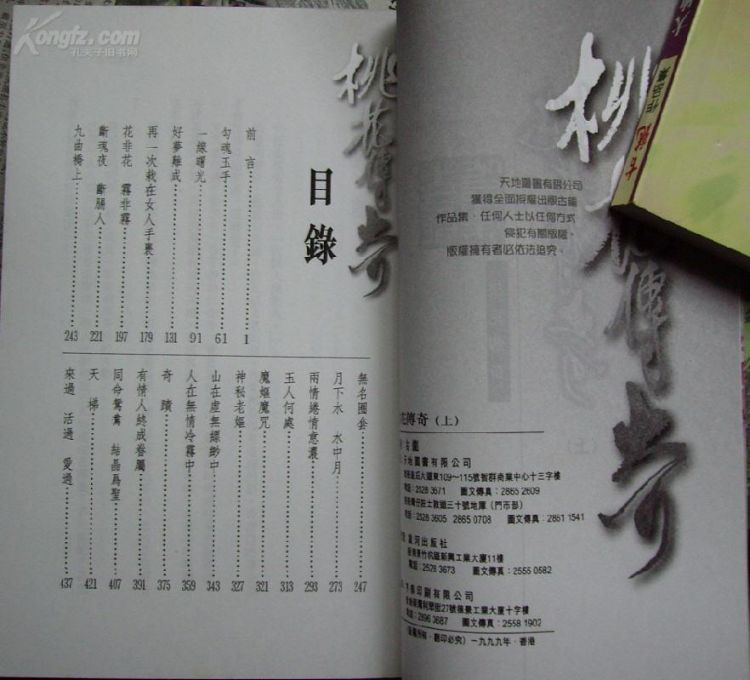 Kongfz.com
孔夫子旧书网
桃花傳奇
目錄
前言 1
勾魂玉手 61
一線曙光 91
好夢難成 131
再一次栽在女人手裏 179
花非花 霧非霧 197
斷魂夜 斷腸人 221
九曲橋上 243
無名圈套 247
月下水 水中月 273
兩情綣情意濃 293
玉人何處 313
魔嫗魔咒 321
神秘老嫗 327
山在虛無縹緲中 343
人在無情冷霧中 359
奇蹟 375
有情人終成眷屬 391
同命鴛鴦 結晶爲聖 407
天梯 421
來過 活過 愛過 437
桃花傳奇
天地圖書有限公司
獲得全面授權出版古龍
作品集，任何人士以任何方式
侵犯有關版權，
版權擁有者必依法追究。
花傳奇（上）
古龍
天地圖書有限公司
后大道東109～115號智群商業中心十三字樓
電話：2528 3671 圖文傳真：2865 2609
灣仔莊士敦道三十號地庫（門市部）
電話：2528 3605 2865 0708 圖文傳真：2861 1541
星河出版社
新業街竹杭區新興工業大廈11樓
電話：2528 3673 圖文傳真：2555 0582
印刷有限公司
利榮街27號德景工業大廈十字樓
電話：2896 3687 圖文傳真：2558 1902
（版權所有・翻印必究）一九九九年・香港
古龍
作品集